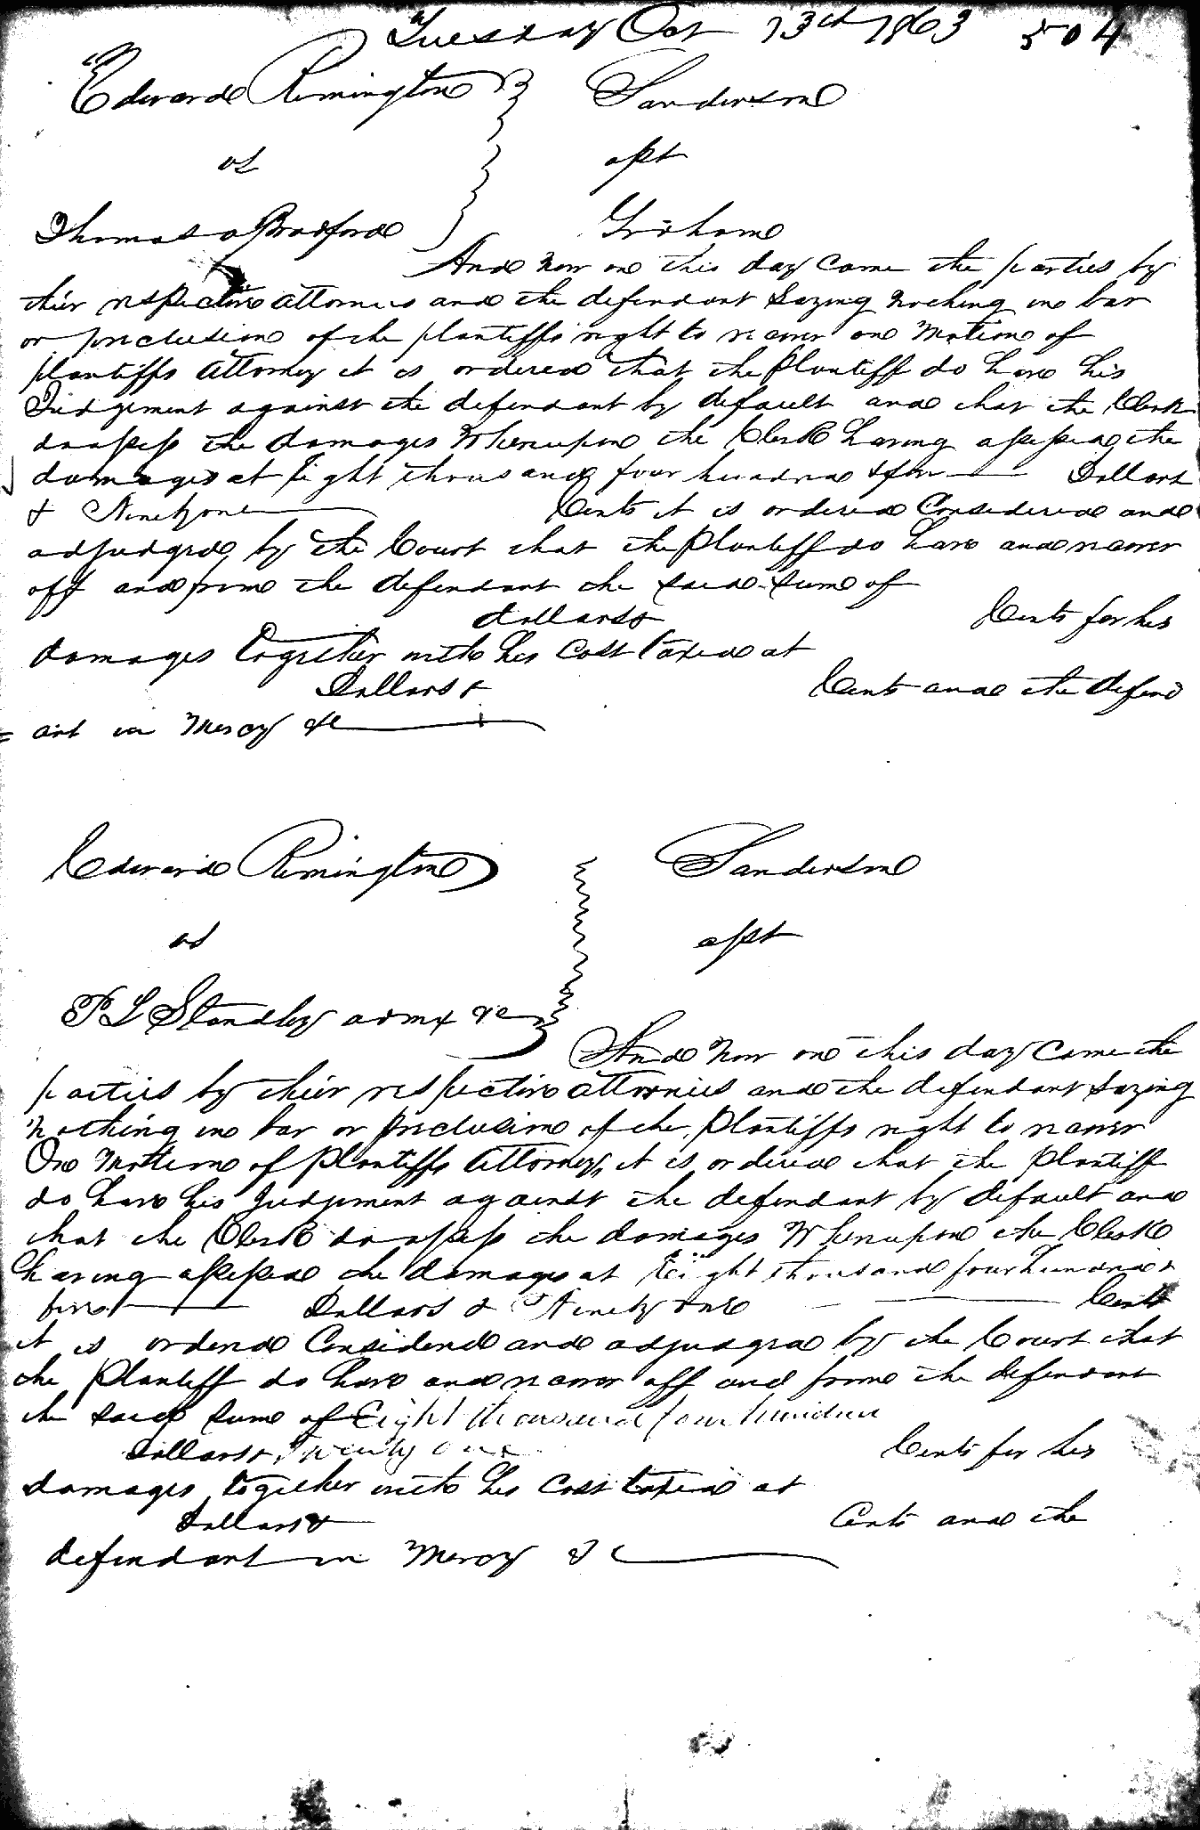 Tuesday Oct 13th 1863 504
Edward Rimington Sanderson
vs apt
Thomas a Bradford Graham
And now on this day came the parties by
thier respective attornies and the defendant Saying nothing in bar
or preclusion of the plantiffs right to recover on motion of
plantiffs attorney it is ordered that the Plantiff do have his
Judgement against the defendant by default and that the Clerk
do assess the damages Whereupon the Clerk having assessed the
damages at Eight thousand four hundred & five Dollars
& Ninety one Cents it is ordered Considered and
adjudged by the Court that the Plantiff do have and recover
off and from the defendant the said sum of
dollars & Cents for his
damages together with his cost taxed at
Dollars & Cents and the defend
= ant in Mercy &c
Edward Rimington Sanderson
vs apt
P L Standley admx &c
And now on this day came the
parties by thier respective attornies and the defendant Saying
nothing in bar or preclusion of the Plantiffs right to recover
On motion of plantiffs attorney it is ordered that the Plantiff
do have his Judgement against the defendant by default and
that the Clerk do assess the damages Whereupon the Clerk
having assessed the damages at Eight thousand four hundred &
five Dollars & Ninety one Cents
it is ordered Considered and adjudged by the Court that
the Plantiff do have and recover off and from the defendant
the said sum of Eight thousand four hundred
dollars & Twenty one Cents for his
damages together with his cost taxed at
dollars & Cents and the
defendant in Mercy &c